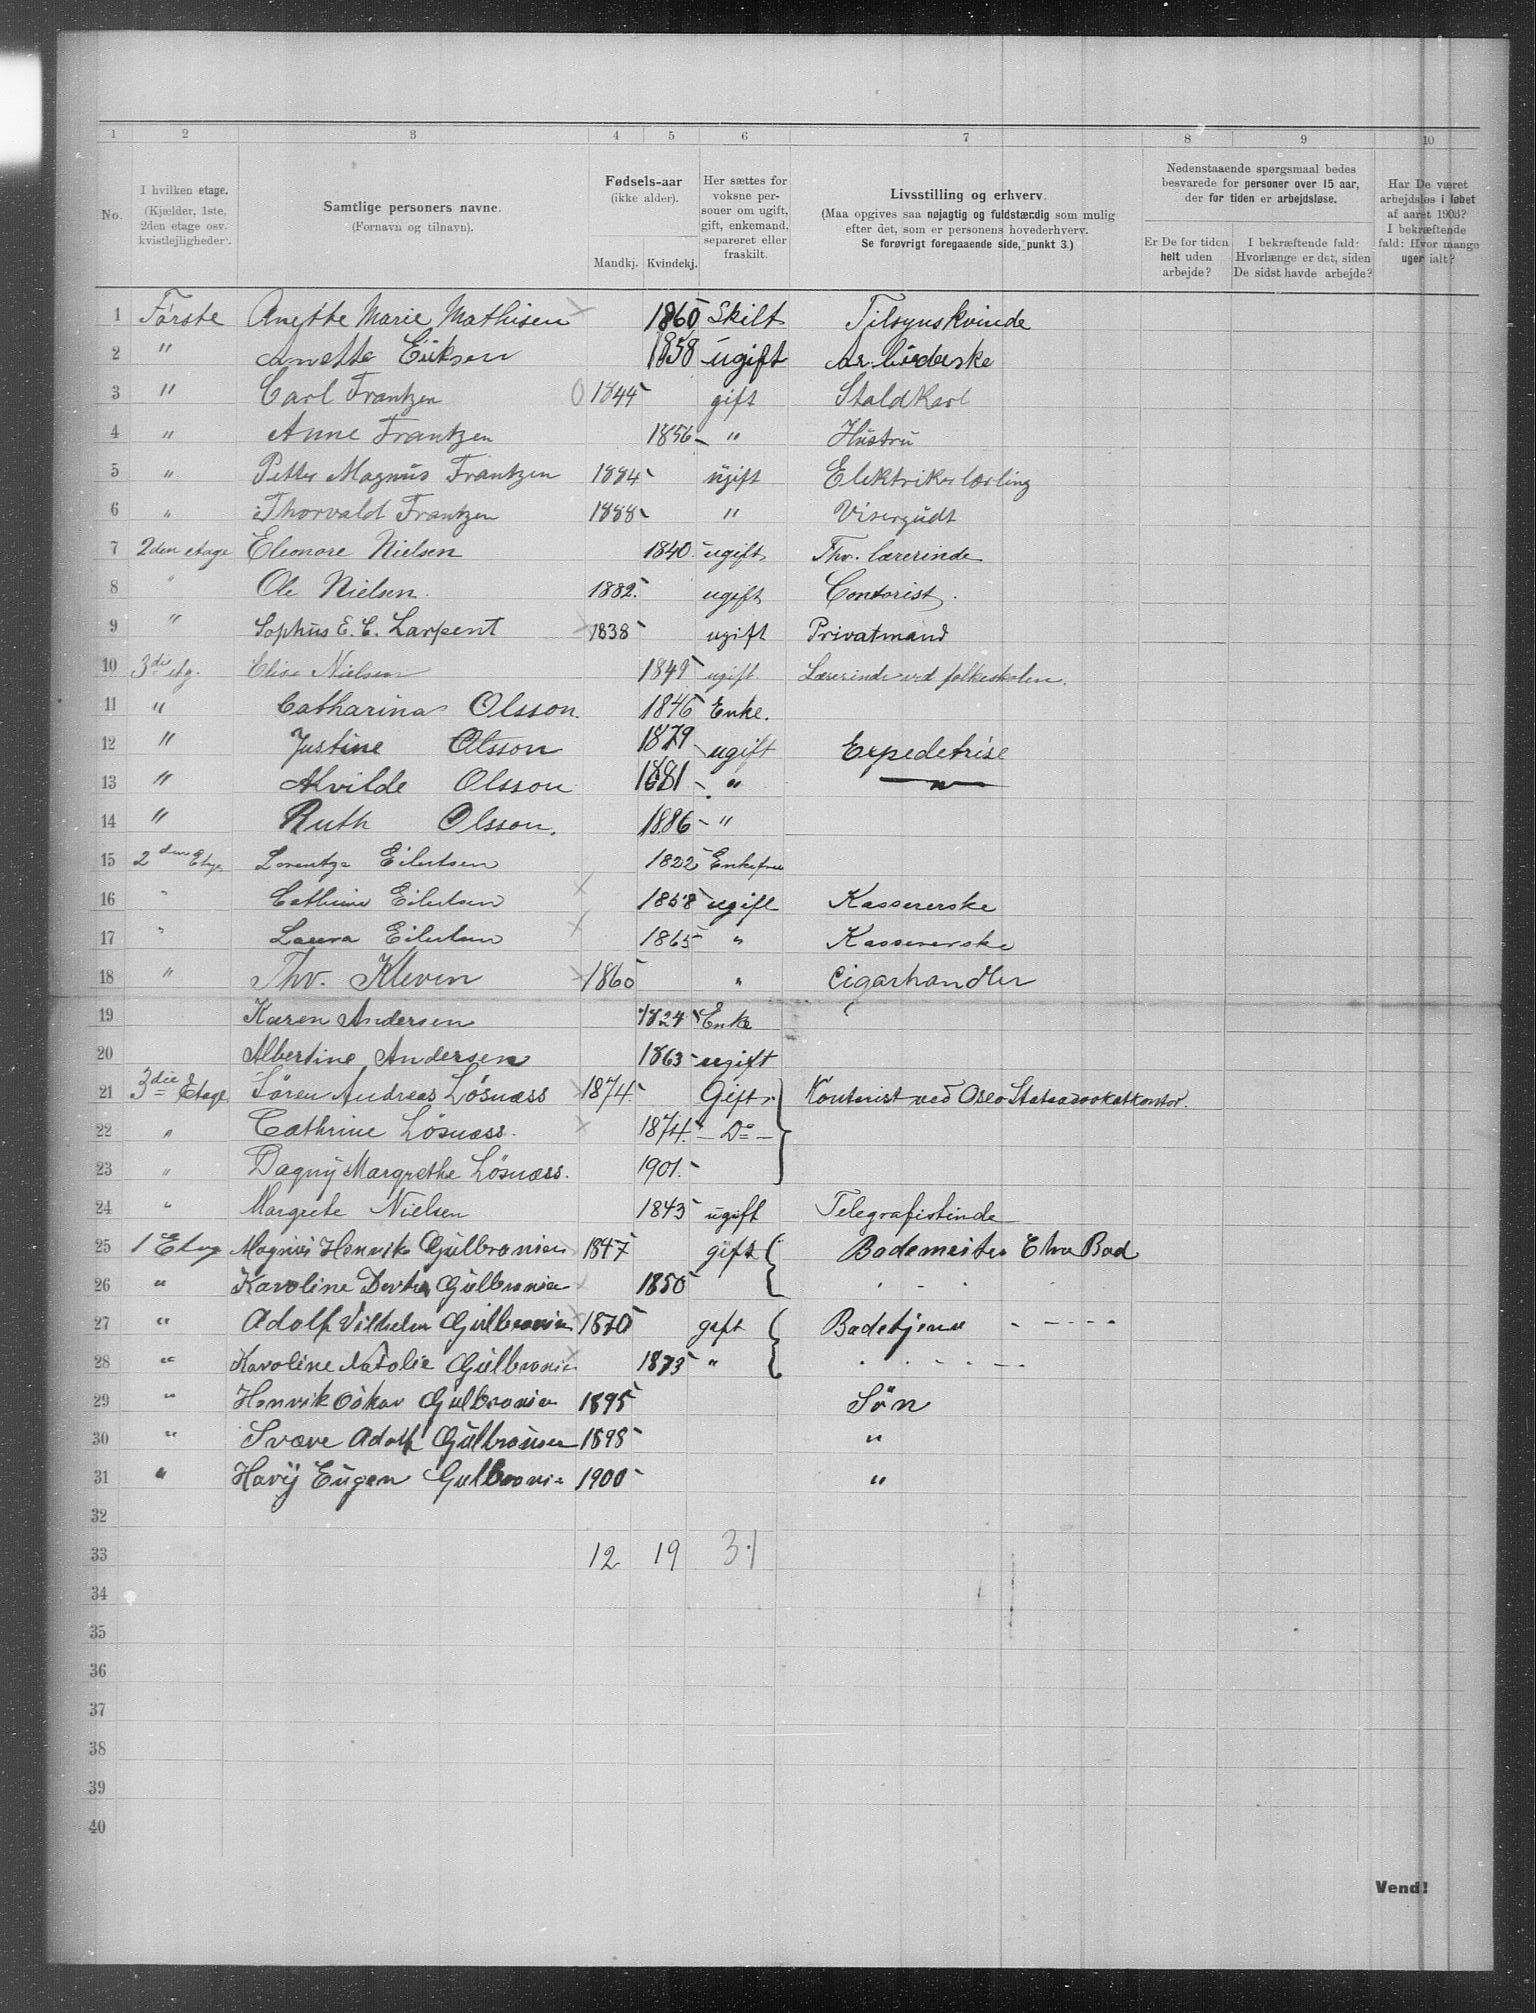 1 2 3 4 5 6 7 8 9 10
No.
I hvilken etage.
(Kjælder, 1ste,
2den etage osv.
kvistlejligheder).
Samtlige personers navne.
(Fornavn og tilnavn).
Fødsels-aar
(ikke alder).
Mandkj. Kvindekj.
Her sættes for
voksne per-
soner om ugift,
gift, enkemand,
separeret eller
fraskilt.
Livsstilling og erhverv.
(Maa opgives saa nøjagtig og fuldstændig som mulig
efter det, som er personens hovederhverv.
Se forøvrigt foregaaende side, punkt 3.)
Nedenstaaende spørgsmaal bedes
besvarede for personer over 15 aar,
der for tiden er arbejdsløse.
Er De for tiden
helt uden
arbejde?
I bekræftende fald:
Hvorlænge er det, siden
De sidst havde arbejde?
Har De været
arbejdsløs i løbet
af aaret 1903?
I bekræftende
fald: Hvor mange
uger ialt?
1 Første Anette Marie Mathisen 1860 Skilt Tilsynskvinde
2 " Anette Eriksen 1858 ugift Arbiederske
3 " Carl Frantzen 1844 gift Staldkarl
4 " Anne Frantzen 1856 " Hustru
5 " Petter Magnus Frantzen 1884 ugift Elektrikerlærling
6 " Thorvald Frantzen 1888 " Visergudt
7 2den etage Eleonore Nielsen 1840 ugift Thv. lærerinde
8 " Ole Nielsen. 1882 ugift Contorist.
9 " Sophus E. C. Larpent 1838 ugift Privatmand
10 3die etg. Elise Nielsen 1849 ugift. Lærerinde ved folkeskolen.
11 " Catharina Olsson. 1846 Enke.
12 " Justine Olsson 1879 ugift Expedetrise
13 " Alvilde Olsson 1881 " "
14 " Ruth Olsson. 1886 "
15 2den Etage Lorentze Eilertsen 1822 Enkefrue
16 " Cathrine Eilertsen 1858 ugift Kassererske
17 " Laura Eilertsen 1865 " Kassererske
18 " Thv. Kleven 1860 " Cigarhandler
19 Karen Andersen 1824 Enke
20 Albertine Andersen 1863 ugift
21 3die Etage Søren Andreas Løsnæss 1874 Gift. Kontorist ved Oslo Statsadvokatkontor.
22 " Cathrine Løsnæss. 1874. Do
23 " Dagny Margrethe Løsnæss. 1901.
24 " Margrete Nielsen 1843 ugift Telegrafistinde
25 1 Etage Magnus Henrik Gulbransen 1847 gift Bademester Bad
26 " Karoline Gulbransen 1850
27 " Adolf Vilhelm Gulbransen 1870 gift Badetjener - - - - -
28 " Karoline Natalie Gulbransen 1873 "
29 " Henrik Oskar Gulbransen 1895 Søn
30 " Svære Adolf Gulbransen 1898 "
31 " Harij Eugen Gulbransen 1900 "
32
33 12 19 31
34
35
36
37
38
39
40
Vend!